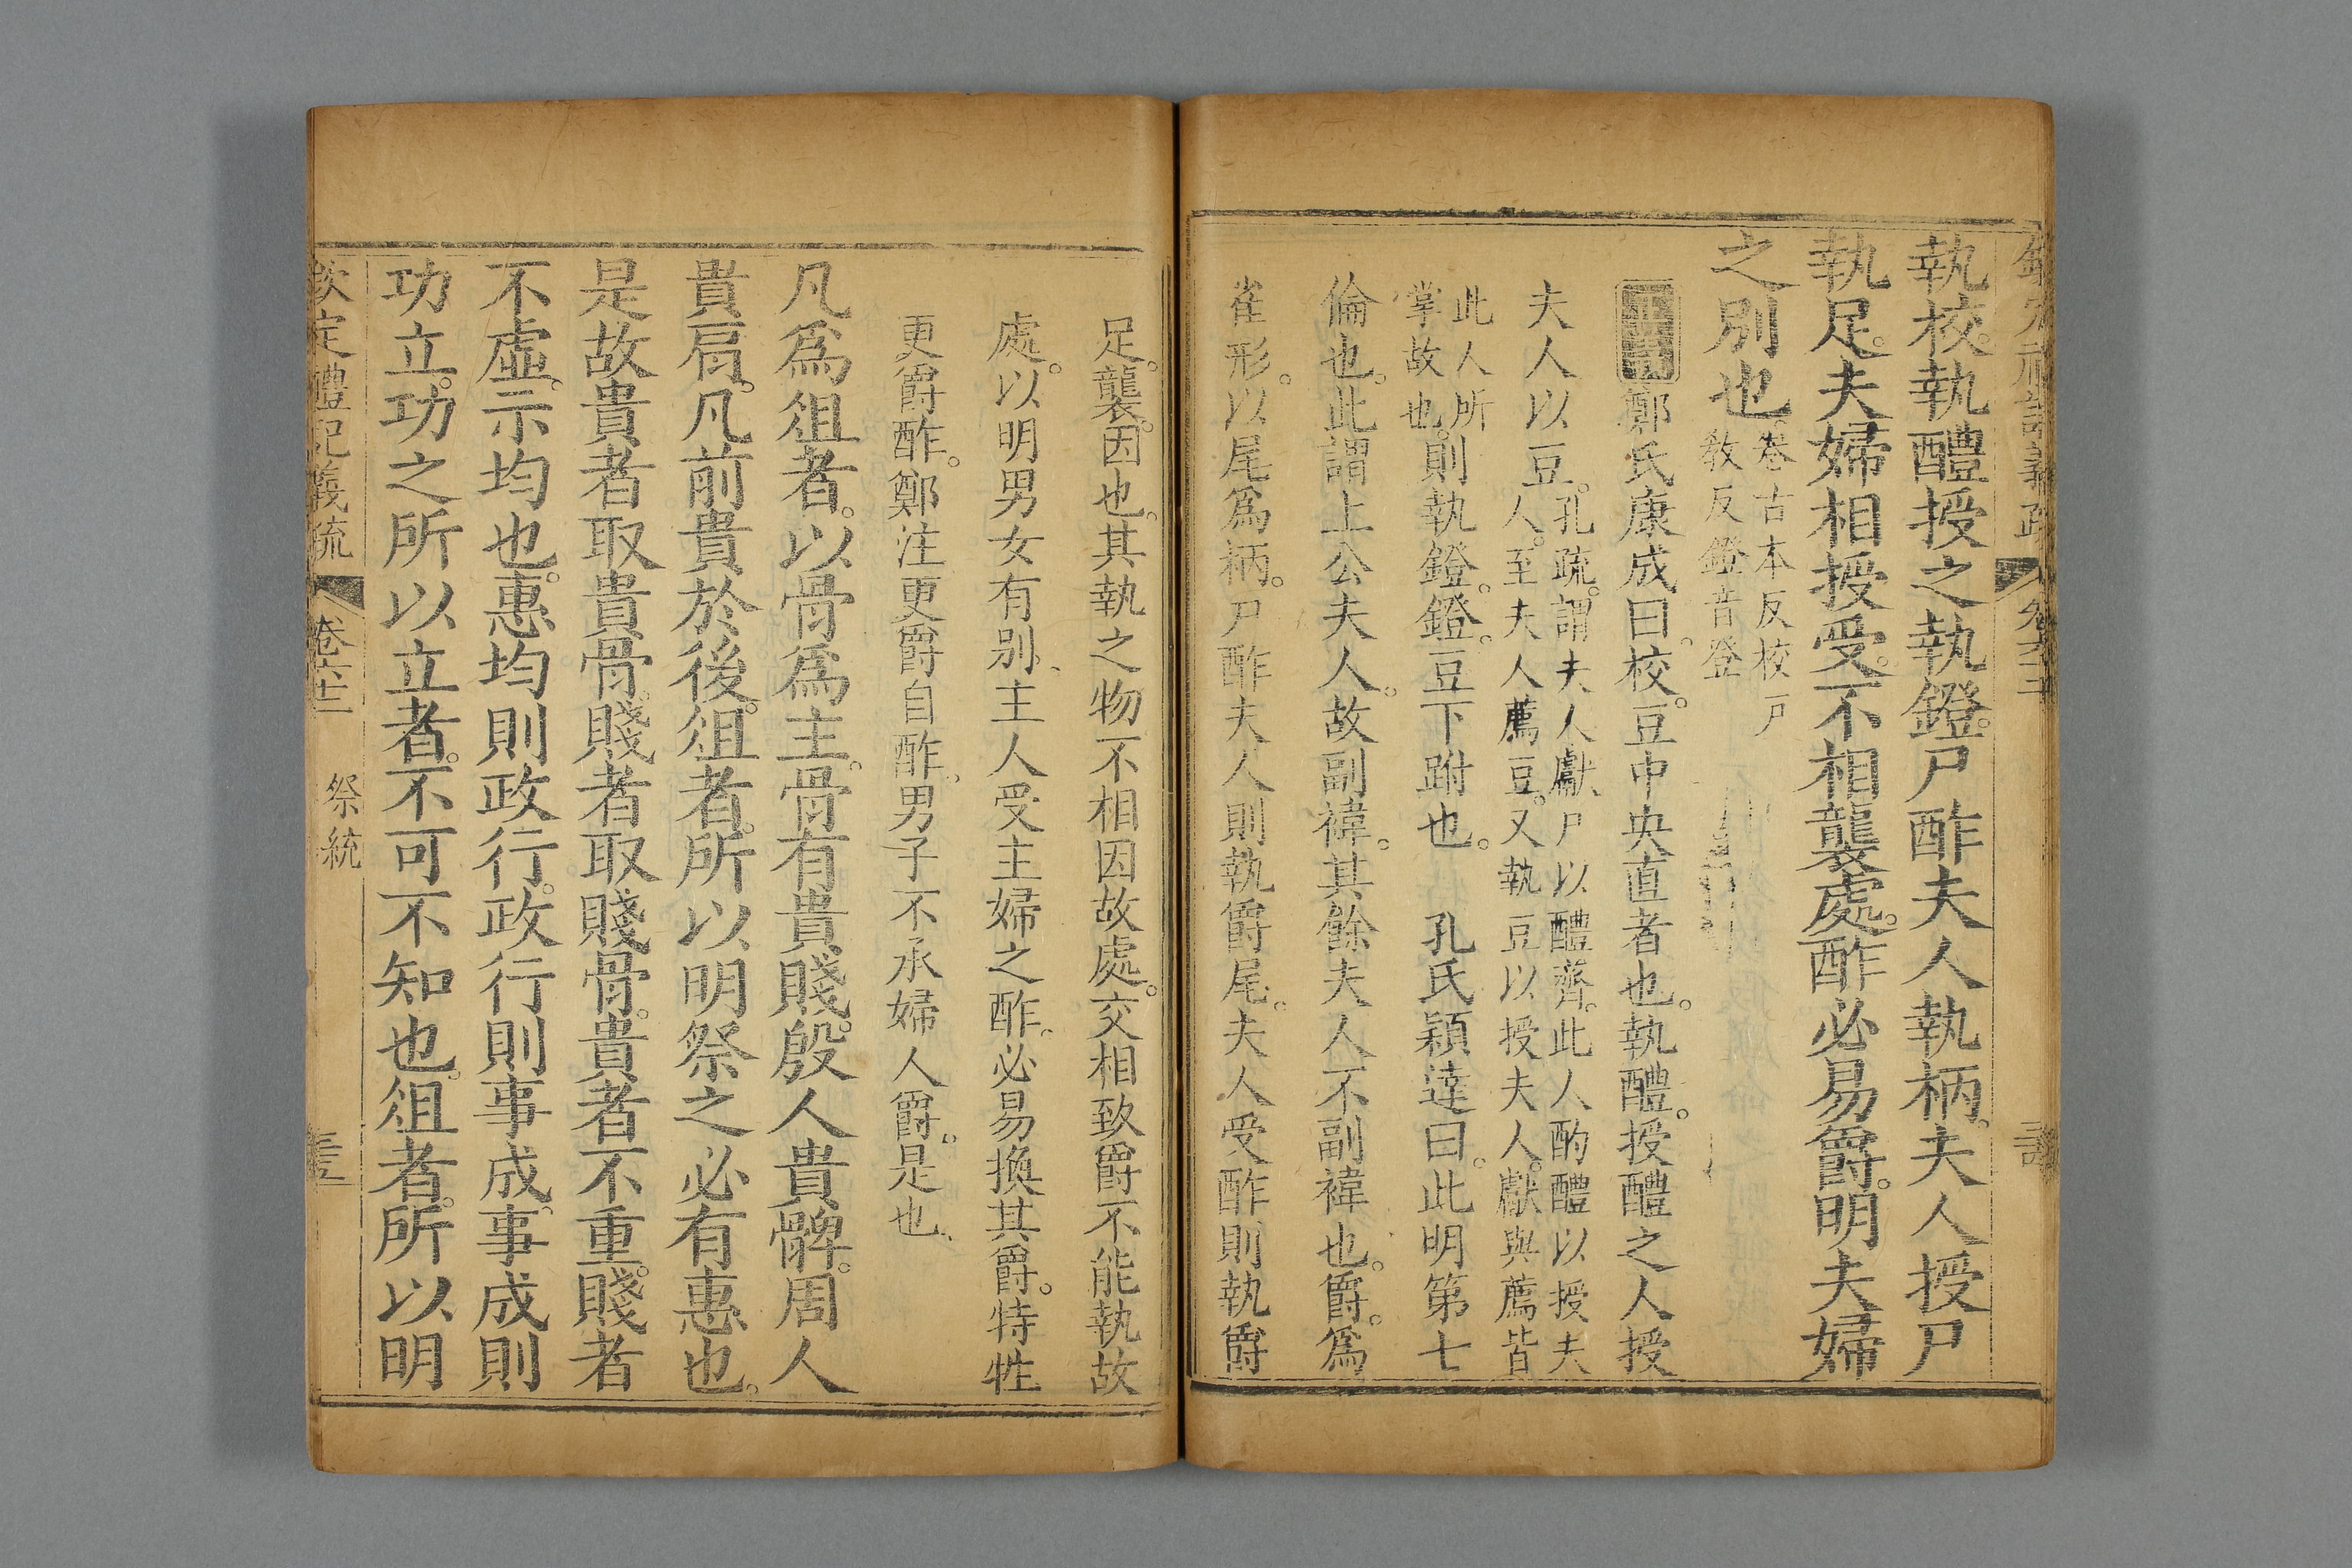 執校。執醴授之執鐙。尸酢夫人執柄。夫人授尸
執足。夫婦相授受。不相襲處。酢必易爵。明夫婦
之別也。
卷古本反校戸
敎反鐙音登
鄭氏康成曰。校。豆中央直者也。執醴。授醴之人授
夫人以豆。
孔疏。謂夫人獻尸以醴齊。此人酌醴以授夫
人。至夫人薦豆。又執豆以授夫人。獻與薦皆
此人所
掌故也。
則執鐙。鐙。豆下跗也。 孔氏穎達曰。此明第七
倫也。此謂上公夫人。故副褘。其餘夫人不副褘也。爵。爲
雀形。以尾爲柄。尸酢夫人則執爵尾。夫人受酢則執爵
足。襲。因也。其執之物不相因故處。交相致爵不能執故
處。以明男女有别、主人受主婦之酢。必易換其爵。特牲
更爵酢。鄭注更爵自酢。男子不承婦人爵。是也、
凡爲俎者。以骨爲主。骨有貴賤。殷人貴髀。周人
貴肩。凡前貴於後。俎者。所以明祭之必有惠也。
是故貴者取貴骨。賤者取賤骨。貴者不重。賤者
不虛。示均也。惠均則政行。政行則事成。事成則
功立。功之所以立者。不可不知也。俎者。所以明
欽定禮記義疏 卷六十二 祭統